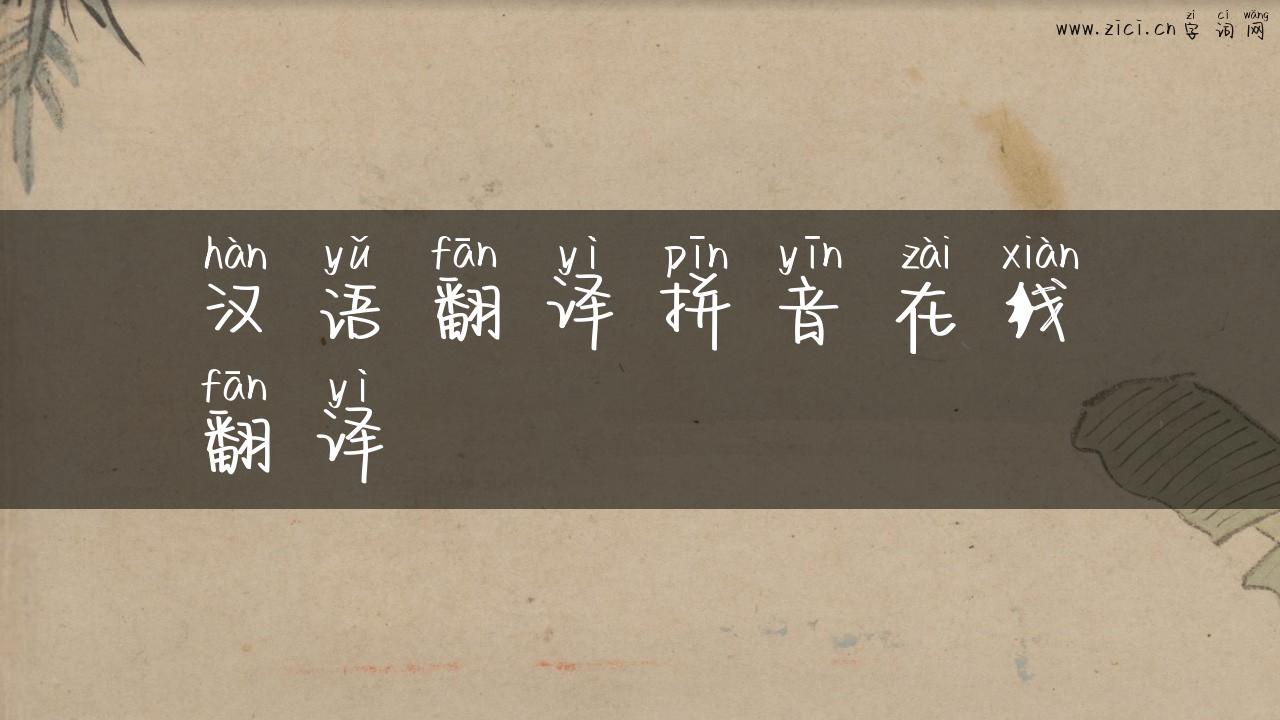 zì cí wǎng
www.zici.cn 字词网
hàn yǔ fān yì pīn yīn zài xiàn
汉语翻译拼音在线
fān yì
翻译